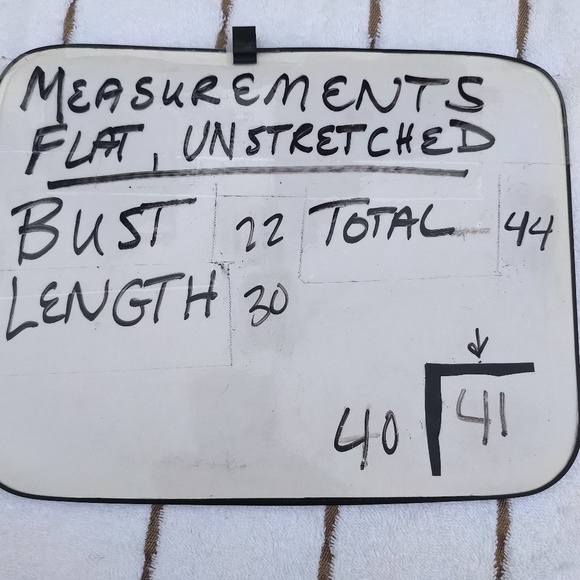 MEASUREMENTS
FLAT, UNSTRETCHED
BUST 22 TOTAL 44
LENGTH 30
40 41